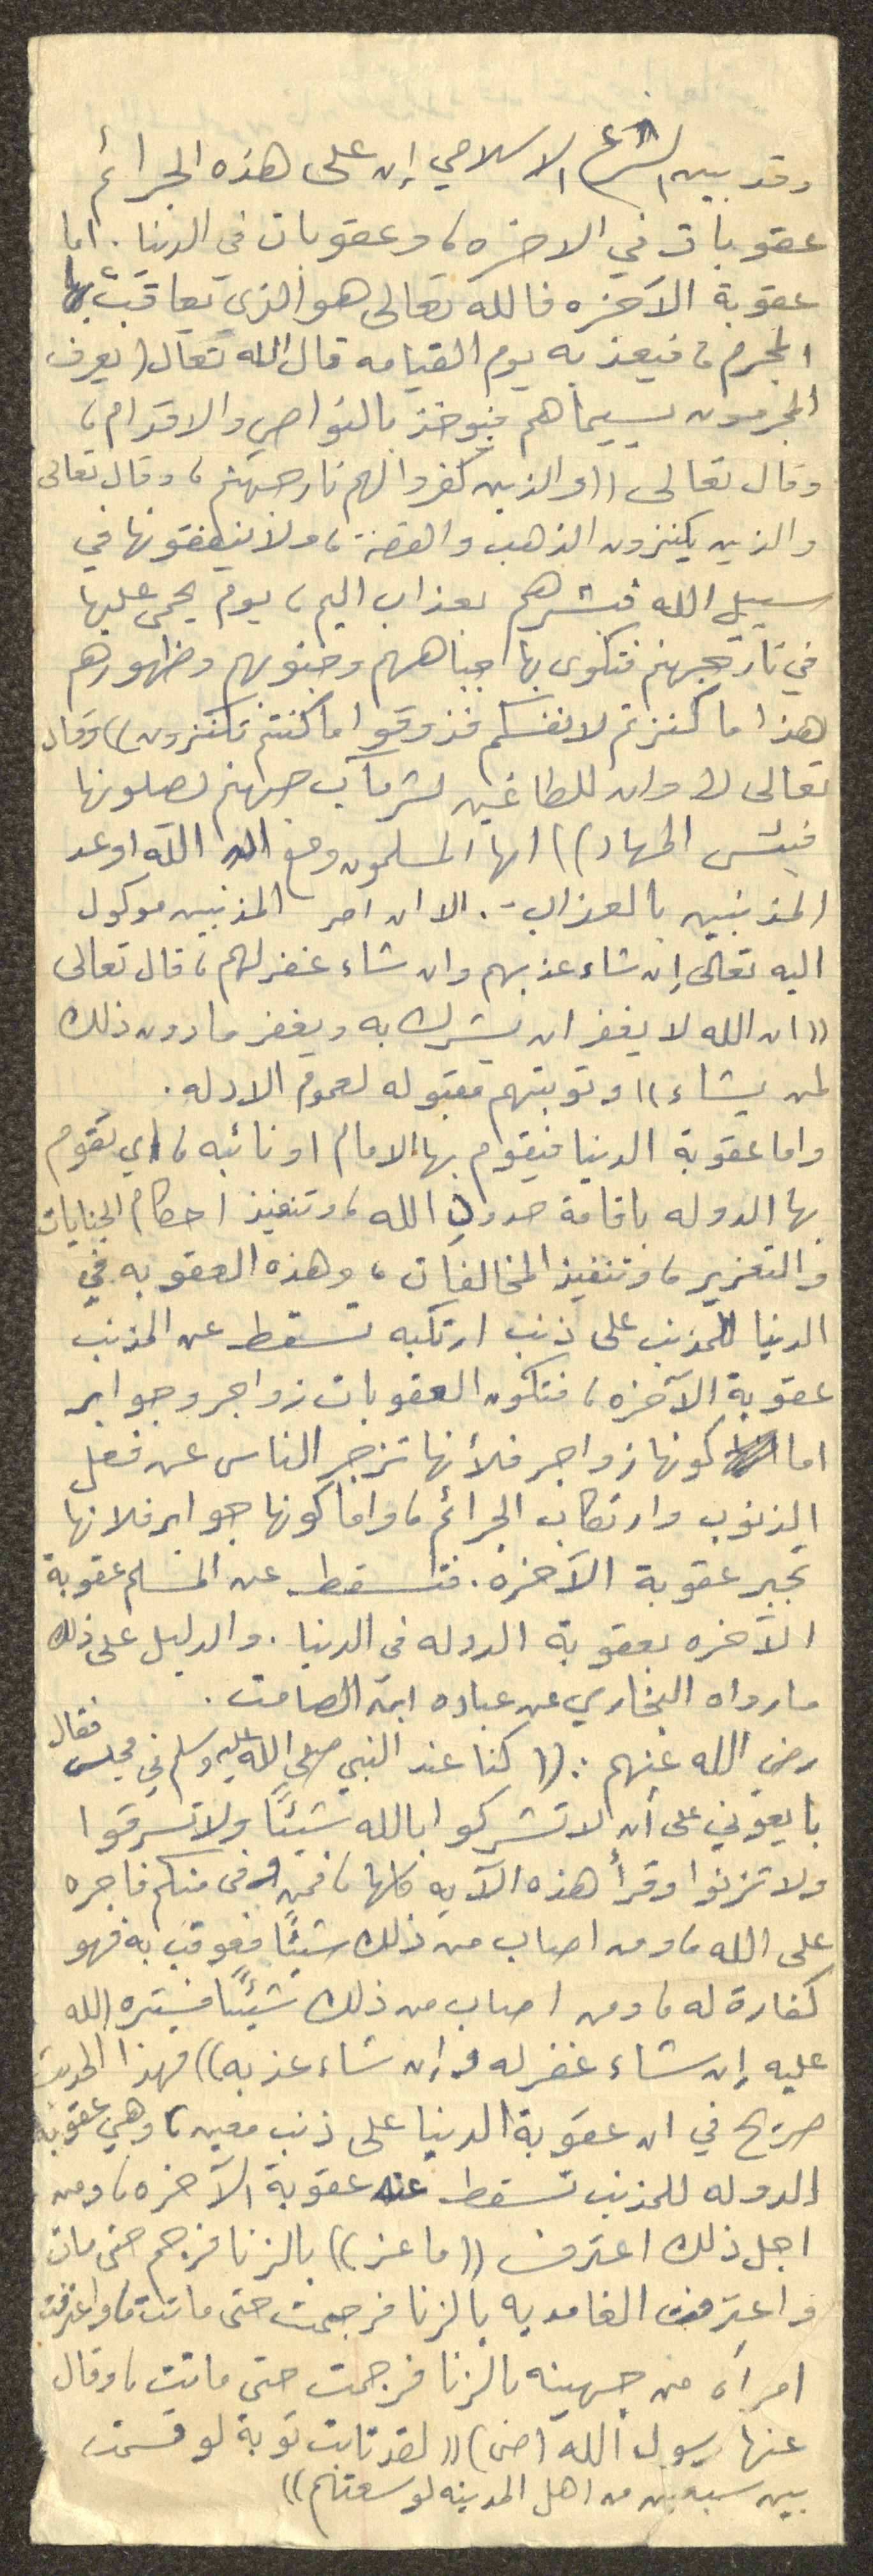 وقد بين الشرع الاسلامي إن على هذه الجرائم
عقوبات في الاخره، وعقوبات في الدنيا. اما
عقوبة الآخره فالله تعالى هو الذي يعاقب بها
المجرم، فيعذبه يوم القيامه قال الله تعال (يعرف
المجرمون بسيماهم فيوخذ بالنواصي والاقدام،
وقال تعالى ((والذين كفروا لهم نار جهنم، وقال تعالى
والذين يكنزون الذهب والفضة، ولا ينفقونها في
سبيل الله فبشرهم بعذاب اليم، يوم يحمى عليها
في نار جهنم فتكوى بها جباههم وجنوبهم وظهورهم
هذا ما كنزتم لانفسكم فذوقوا ما كنتم تكنزون)) وقال
تعالى (( وان للطاغين لشر مآب جهنم يصلونها
فبئس المهاد)) ايها المسلمون ومع ان الله اوعد
المذنبين بالعذاب. الا ان امر المذنبين موكول
اليه تعالى إن شاء عذبهم وان شاء غفر لهم، قال تعالى
((ان الله لا يغفر ان يشرك به ويغفر ما دون ذلك
لمن يشاء)) وتوبتهم مقبوله لعموم الادله.
واما عقوبة الدنيا فيقوم بها الامام او نائبه، اي تقوم
بها الدوله باقامة حدود الله، وتنفيذ احكام الجنايات
والتعزير، وتنفيذ المخالفات، وهذه العقوبه في
الدنيا للمذنب على ذنب ارتكبه تسقط عن المذنب
عقوبة الآخره، فتكون العقوبات زواجر وجوابر
اما كونها زواجر فلأنها تزجر الناس عن فعل
الذنوب وارتكاب الجرائم، واما كونها جوابر فلانها
تجبر عقوبة الآخره. فتسقط عن المسلم عقوبة
الآخره بعقوبة الدوله في الدنيا. والدليل على ذلك
مارواه البخاري عن عباده ابن الصامت.
رضي الله عنهم: (( كنا عند النبي صلى الله عليه وسلم في مجلس فقال
بايعوني على أن لا تشركوا بالله شيئًا ولا تسرقوا
ولا تزنوا وقرأ هذه الآيه كلها، فمن وفى منكم فاجره
على الله، ومن اصاب من ذلك شيئًا فعوقب به فهو
كفارة له، ومن اصاب من ذلك شيئًا فستره الله
عليه إن شاء غفر له وإن شاء عذبه)) فهذا الحديث
صريح في ان عقوبة الدنيا على ذنب معين، وهي عقوبة
الدوله للمذنب تسقط عنه عقوبة الآخره، ومن
اجل ذلك اعترف ((ماعز)) بالزنا فرجم حتى مات
واعترفت الغامديه بالزنا فرجمت حتى ماتت، واعترفت
امراه من جهينه بالزنا فرجمت حتى ماتت، وقال
عنها رسول الله (ص) ((لقد تابت توبة لو قسمت
بين سبعين من اهل المدينه لوسعتهم))